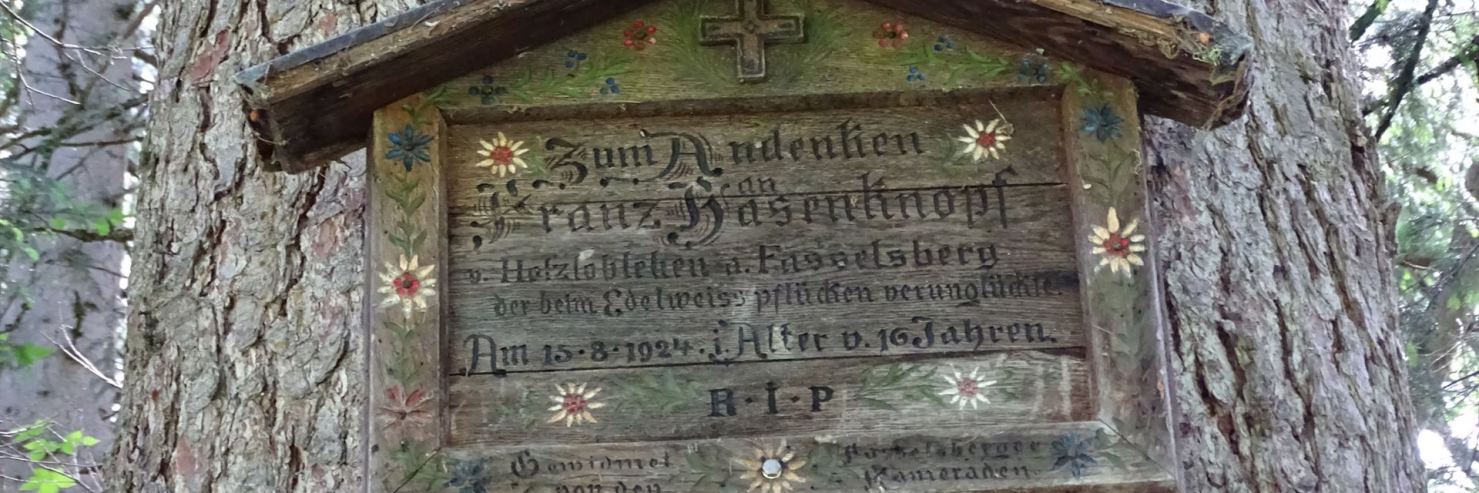 Zum Andenken
an
Franz Hasenknopf
v. Holzlobleken a. Fasselsberg
der beim Edelweiss pflücken verunglückte.
Am 15·8·1924. i. Alter v. 16 Jahren.
R·I·P
Gewidmet Fasselsberger
von den Kameraden.